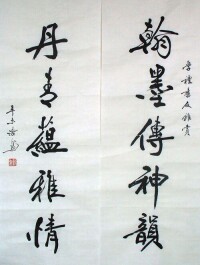 翰墨傳神韻
丹青蘊雅情
辛未